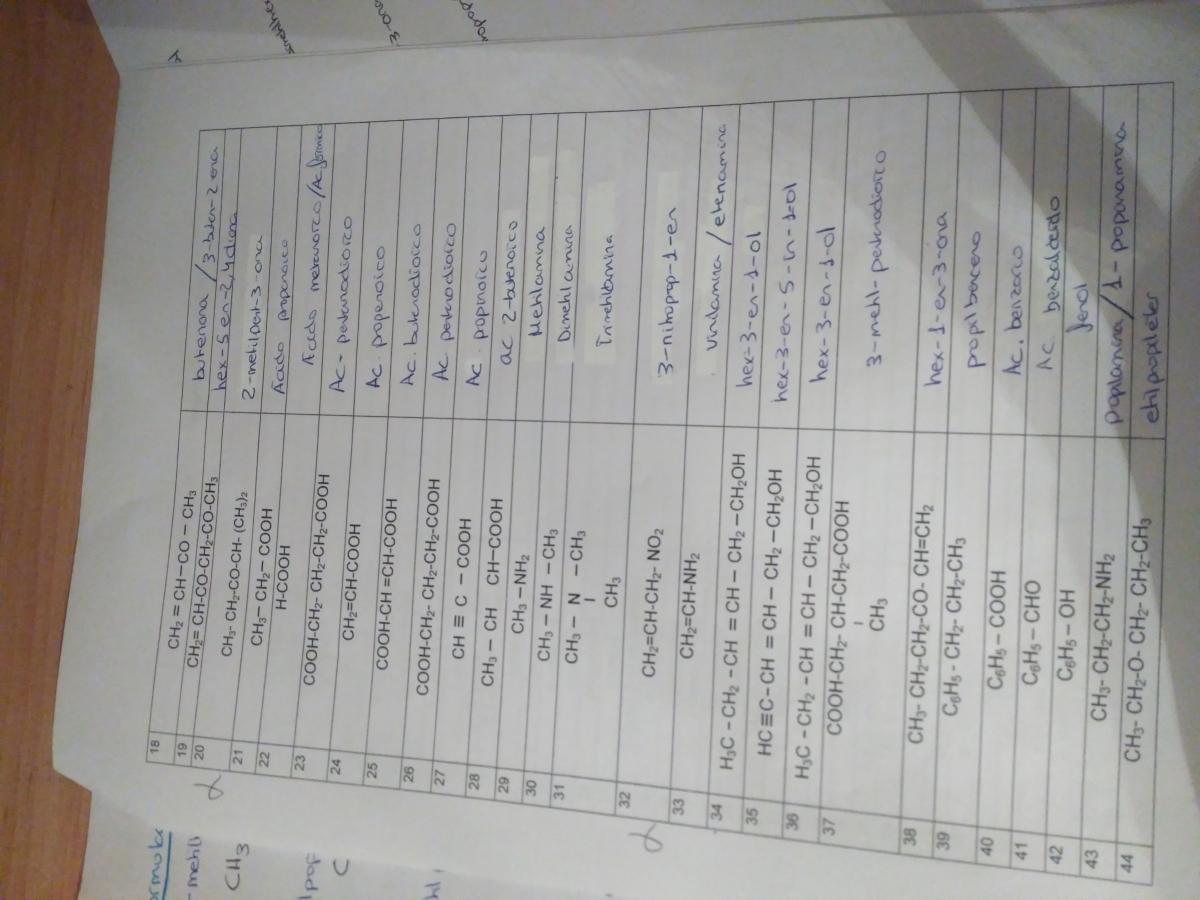 18
19 CH₂ = CH – CO – CH₃ butenona / 3-buten-2 ona
20 CH₂= CH-CO-CH₂-CO-CH₃ hex-5 en-2,4 diona
21 CH₃- CH₂-CO-CH- (CH₃)₂ 2-metilpent-3-ona
22 CH₃ – CH₂ – COOH Ácido propanoico
H-COOH Ácido metanoico/Ac.formico
23 COOH-CH₂- CH₂-CH₂-COOH Ac- pentanodioico
24 CH₂=CH-COOH Ac. propenoico
25 COOH-CH =CH-COOH Ac. butenodioico
26 COOH-CH₂- CH₂-CH₂-COOH Ac pentanodioico
27 CH ≡ C – COOH Ac. popinoico
28 CH₃ – CH CH–COOH ac 2-butenoico
29 CH₃ –NH₂ Metilamina
30 CH₃ – NH –CH₃ Dimetilamina
31 CH₃ – N –CH₃ Trimetilamina
CH₃
32 CH₂=CH-CH₂- NO₂ 3-nitropop-1-en
33 CH₂=CH-NH₂ Vinilamina / etenamina
34 H₃C - CH₂ - CH = CH – CH₂ –CH₂OH hex-3-en-1-ol
35 HC≡C- CH = CH – CH₂ –CH₂OH hex-3-en-5-in-1-ol
36 H₃C - CH₂ - CH = CH – CH₂ –CH₂OH hex-3-en-1-ol
37 COOH-CH₂- CH-CH₂-COOH 3-metil-pentanodioico
CH₃
38 CH₃- CH₂-CH₂-CO- CH=CH₂ hex-1-en-3-ona
39 C₆H₅ - CH₂- CH₂-CH₃ propilbenceno
40 C₆H₅ – COOH Ac. benzoico
41 C₆H₅ – CHO Ac. benzaldeido
42 C₆H₅ – OH fenol
43 CH₃- CH₂-CH₂-NH₂ popilamina / 1-popanamina
44 CH₃- CH₂-O- CH₂- CH₂-CH₃ etilpropileter
- metil
CH₃
C